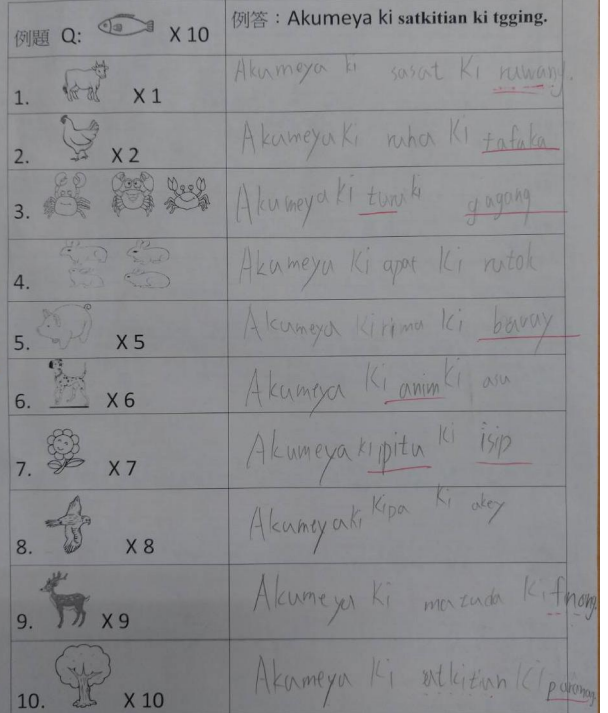 例題 Q: X 10 例答：Akumeya ki satkitian ki tgging.
1. X 1 Akumeya ki sasat Ki ruwang.
2. X 2 Akumeya Ki ruha Ki tafaka
3. Akumeya ki turu ki gagong
4. Akumeya Ki apat Ki rutok
5. X 5 Akumeya Ki rima Ki bavay
6. X 6 Akumeya Ki anim Ki asu
7. X 7 Akumeya ki pitu Ki isip
8. X 8 Akumeya ki Kipa Ki akey
9. X 9 Akumeya Ki matuda Ki finong
10. X 10 Akumeya Ki satkitian Ki